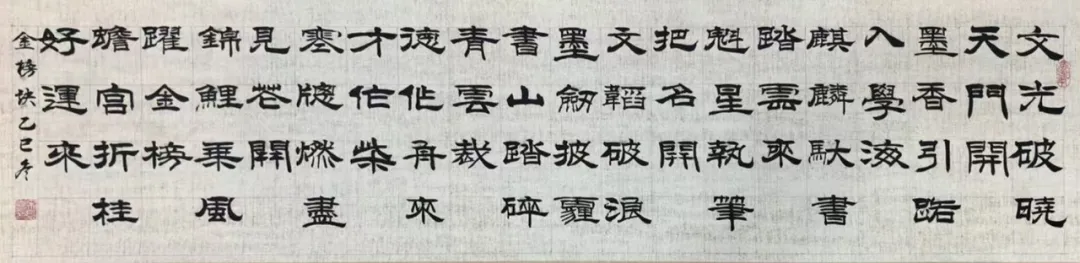 文光破曉
天門開
墨香引路
入學海
麒麟馱書
踏雲來
魁星執筆
把名開
文韜破浪
墨劒披霾
書山踏碎
青雲裁
徳作舟來
才作柴
寒窓燃盡
見花開
錦鯉乘風
躍金榜
蟾宮折桂
好運來
金榜訣乙巳冬